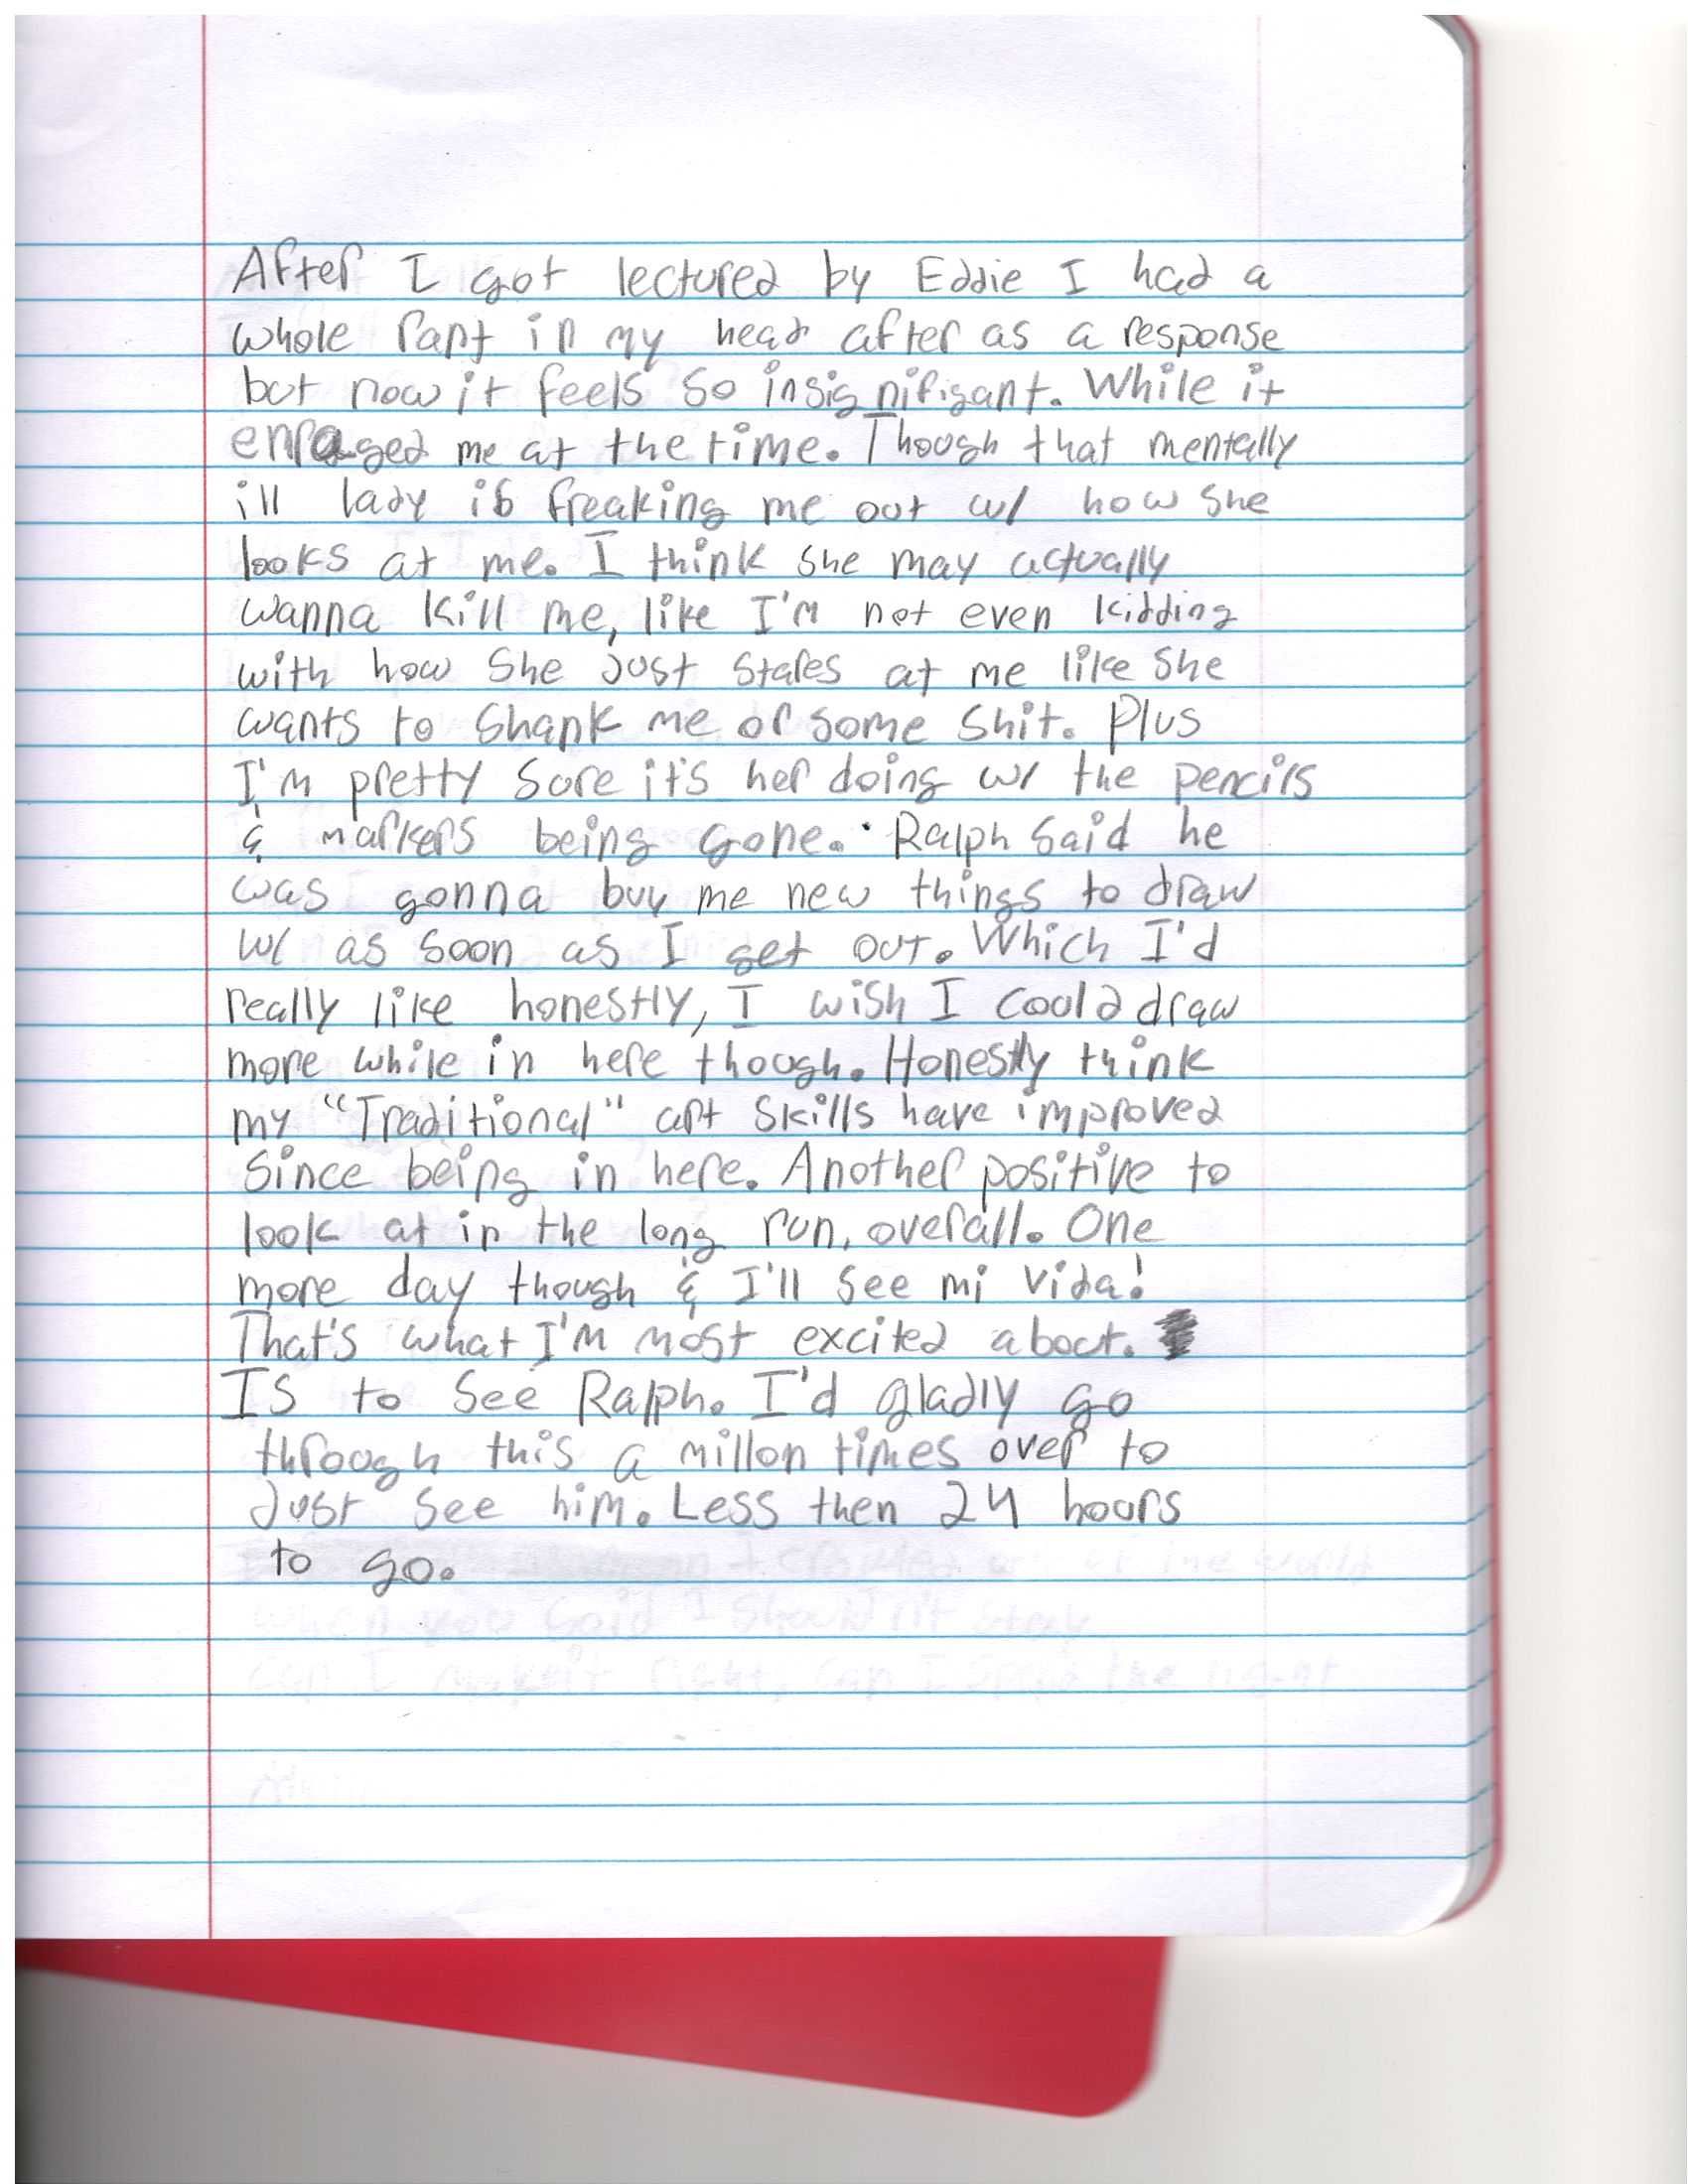 After I got lectured by Eddie I had a
whole rant in my head after as a response
but now it feels so insignifigant. While it
enraged me at the time. Though that mentally
ill lady is freaking me out w/ how she
looks at me. I think she may actually
wanna kill me, like I'm not even kidding
with how she just stares at me like she
wants to shank me or some shit. Plus
I'm pretty sure it's her doing w/ the pencils
& markers being gone. Ralph said he
was gonna buy me new things to draw
w/ as soon as I get out. Which I'd
really like honestly, I wish I could draw
more while in here though. Honestly think
my "Traditional" art skills have improved
since being in here. Another positive to
look at in the long run, overall. One
more day though & I'll see mi vida!
That's what I'm most excited about.
Is to see Ralph. I'd gladly go
through this a millon times over to
just see him. Less then 24 hours
to go.
when you said I shouldn't stay
can I make it right, can I the night